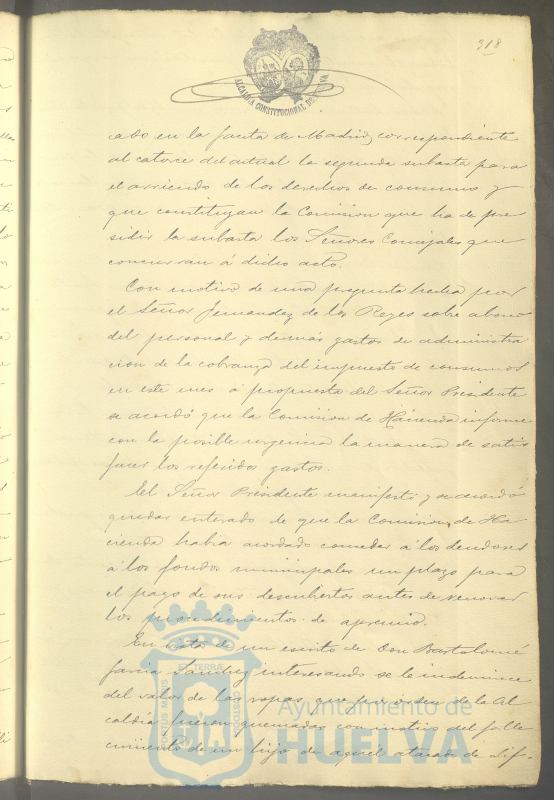 318
ALCALDIA CONSTITUCIONAL DE HUELVA
cado en la Gaceta de Madrid, correspondiente
al catorce del actual la segunda subasta para
el arriendo de los derechos de consumos y
que constituyan la Comision que ha de pre
sidir la subasta los Señores Concejales que
concurran á dicho acto.
Con motivo de una pregunta hecha por
el Señor Fernandez de los Reyes sobre abono
del personal y demás gastos de administra
cion de la cobranza del impuesto de consumos
en este mes á propuesta del Señor Presidente
se acordó que la Comision de Hacienda informe
con la posible urgencia la manera de satis
facer los referidos gastos.
El Señor Presidente manifestó y se acordó
quedar enterado de que la Comision de Ha
cienda habia acordado conceder á los deudores
á los fondos municipales un plazo para
el pago de sus descubiertos antes de renovar
los procedimientos de apremio.
En vista de un escrito de Don Bartolomé
Garcia Sanchez interesando se le indemnice
del valor de las ropas que por orden de la Al
caldia fueron quemadas con motivo del falle
cimiento de un hijo de aquel atacado de dif-
PORTUS MARIS ET TERRAE CUSTODIA
Ayuntamiento de
HUELVA